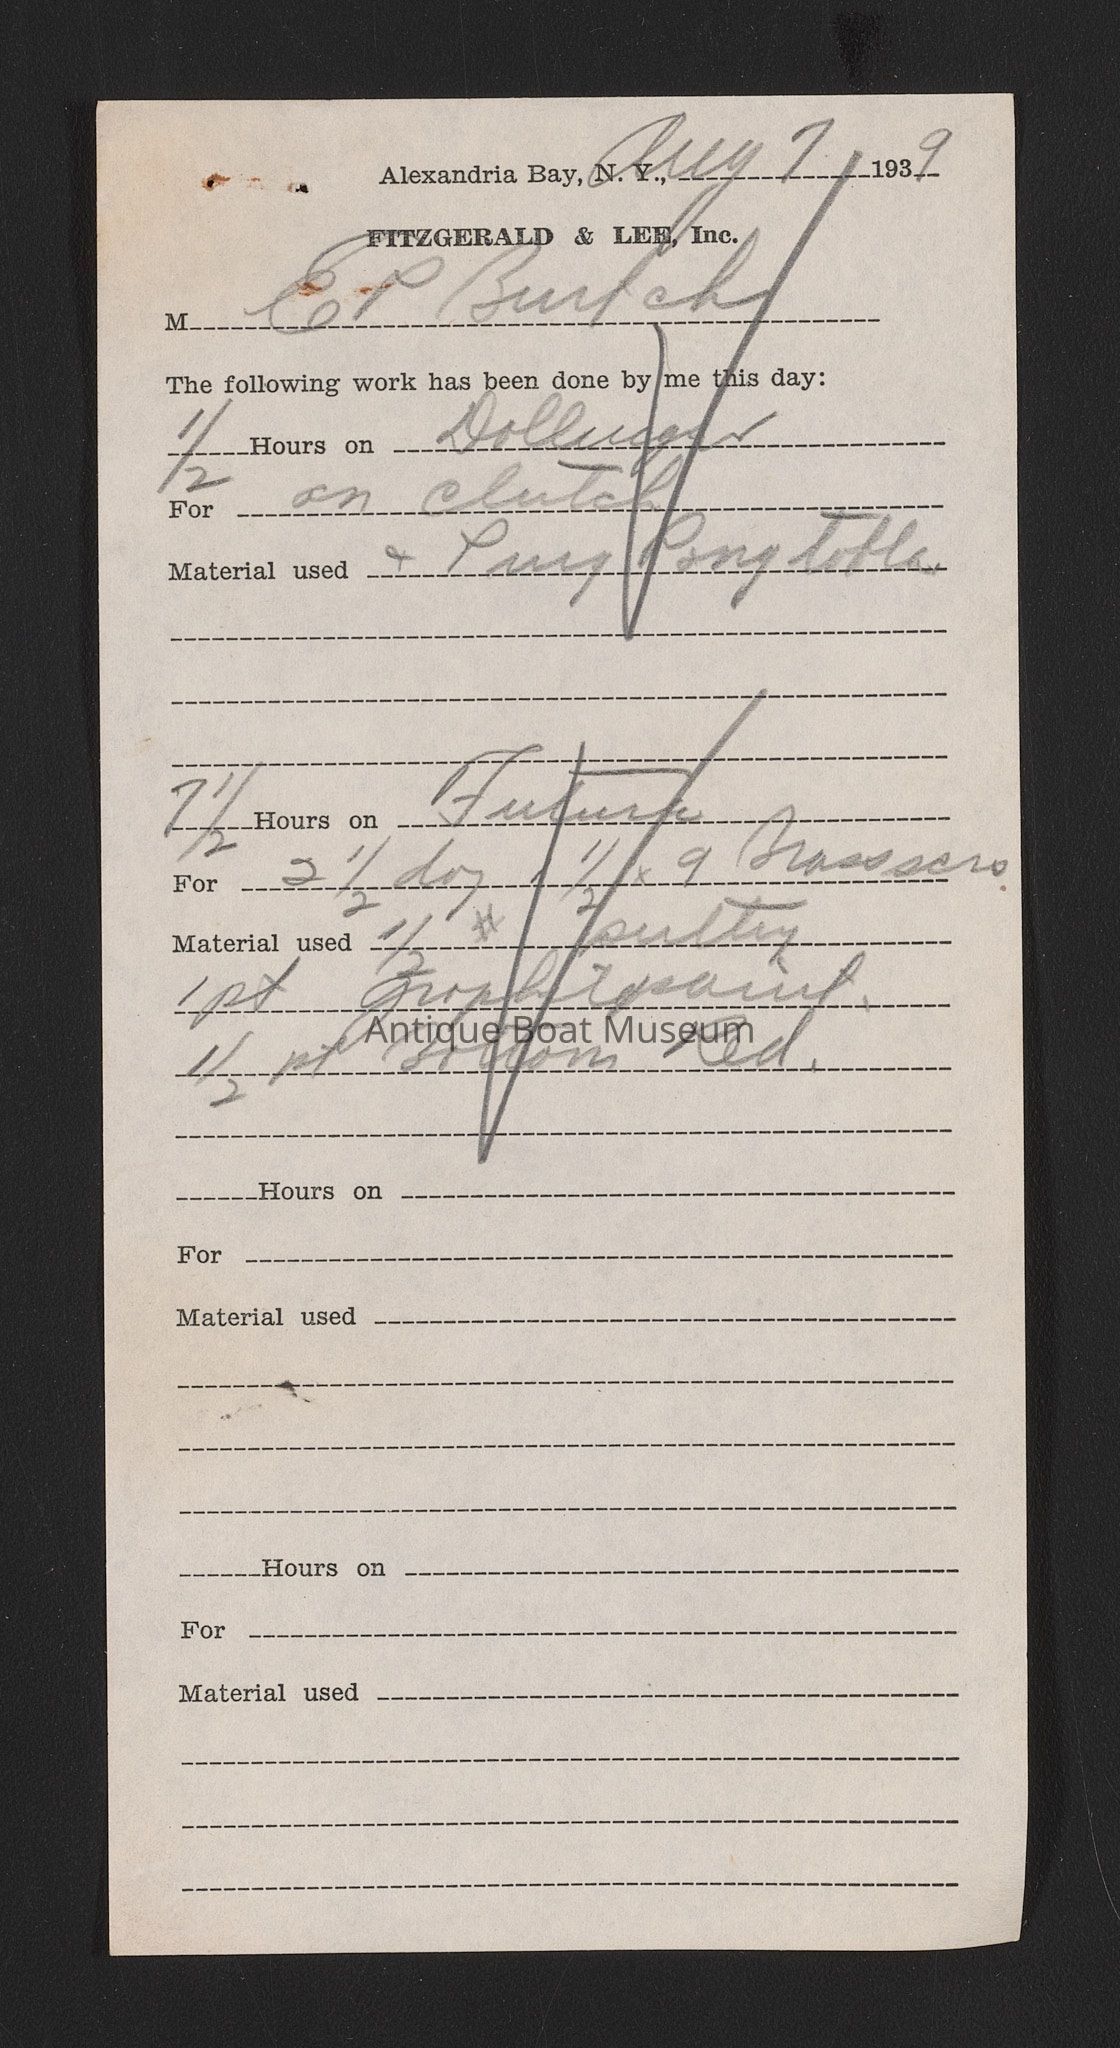 Alexandria Bay, N. Y., Aug 7 1939
FITZGERALD & LEE, Inc.
M E P Burtch
The following work has been done by me this day:
1/2 Hours on Dollinger
For on clutch
Material used + Ping Pong table
7 1/2 Hours on Futura
For 2 1/2 doz 1 1/2 x 9 Brass scrs
Material used 1/2 # puttry
1 pt Graphite paint.
Antique Boat Museum
1 1/2 pt Bottom Red.
Hours on
For
Material used
Hours on
For
Material used